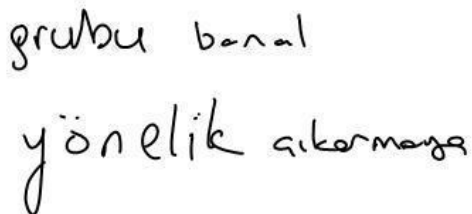 grubu banal
yönelik aıkarmaya